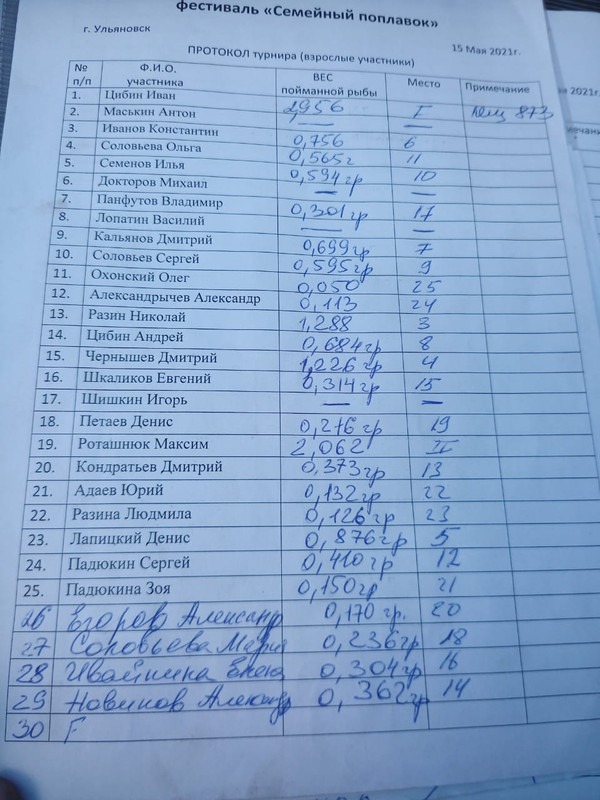 фестиваль «Семейный поплавок»
г. Ульяновск
15 Мая 2021г.
ПРОТОКОЛ турнира (взрослые участники)
№ п/п Ф.И.О. участника ВЕС пойманной рыбы Место Примечание
1. Цибин Иван 2,956 I лещ 873
2. Маськин Антон — —
3. Иванов Константин 0,756 6
4. Соловьева Ольга 0,565г 11
5. Семенов Илья 0,594гр 10
6. Докторов Михаил — —
7. Панфутов Владимир 0,301гр 17
8. Лопатин Василий — —
9. Кальянов Дмитрий 0,699гр 7
10. Соловьев Сергей 0,595гр 9
11. Охонский Олег 0,050 25
12. Александрычев Александр 0,113 24
13. Разин Николай 1,288 3
14. Цибин Андрей 0,684гр 8
15. Чернышев Дмитрий 1,226гр 4
16. Шкаликов Евгений 0,314гр 15
17. Шишкин Игорь — —
18. Петаев Денис 0,216гр 19
19. Роташнюк Максим 2,062 II
20. Кондратьев Дмитрий 0,373гр 13
21. Адаев Юрий 0,132гр 22
22. Разина Людмила 0,126гр 23
23. Лапицкий Денис 0,876гр 5
24. Падюкин Сергей 0,410гр 12
25. Падюкина Зоя 0,150гр 21
26 Егоров Александр 0,170гр. 20
27 Соловьева Мария 0,236гр 18
28 0,304гр 16
29 Новиков Александр 0,362гр 14
30